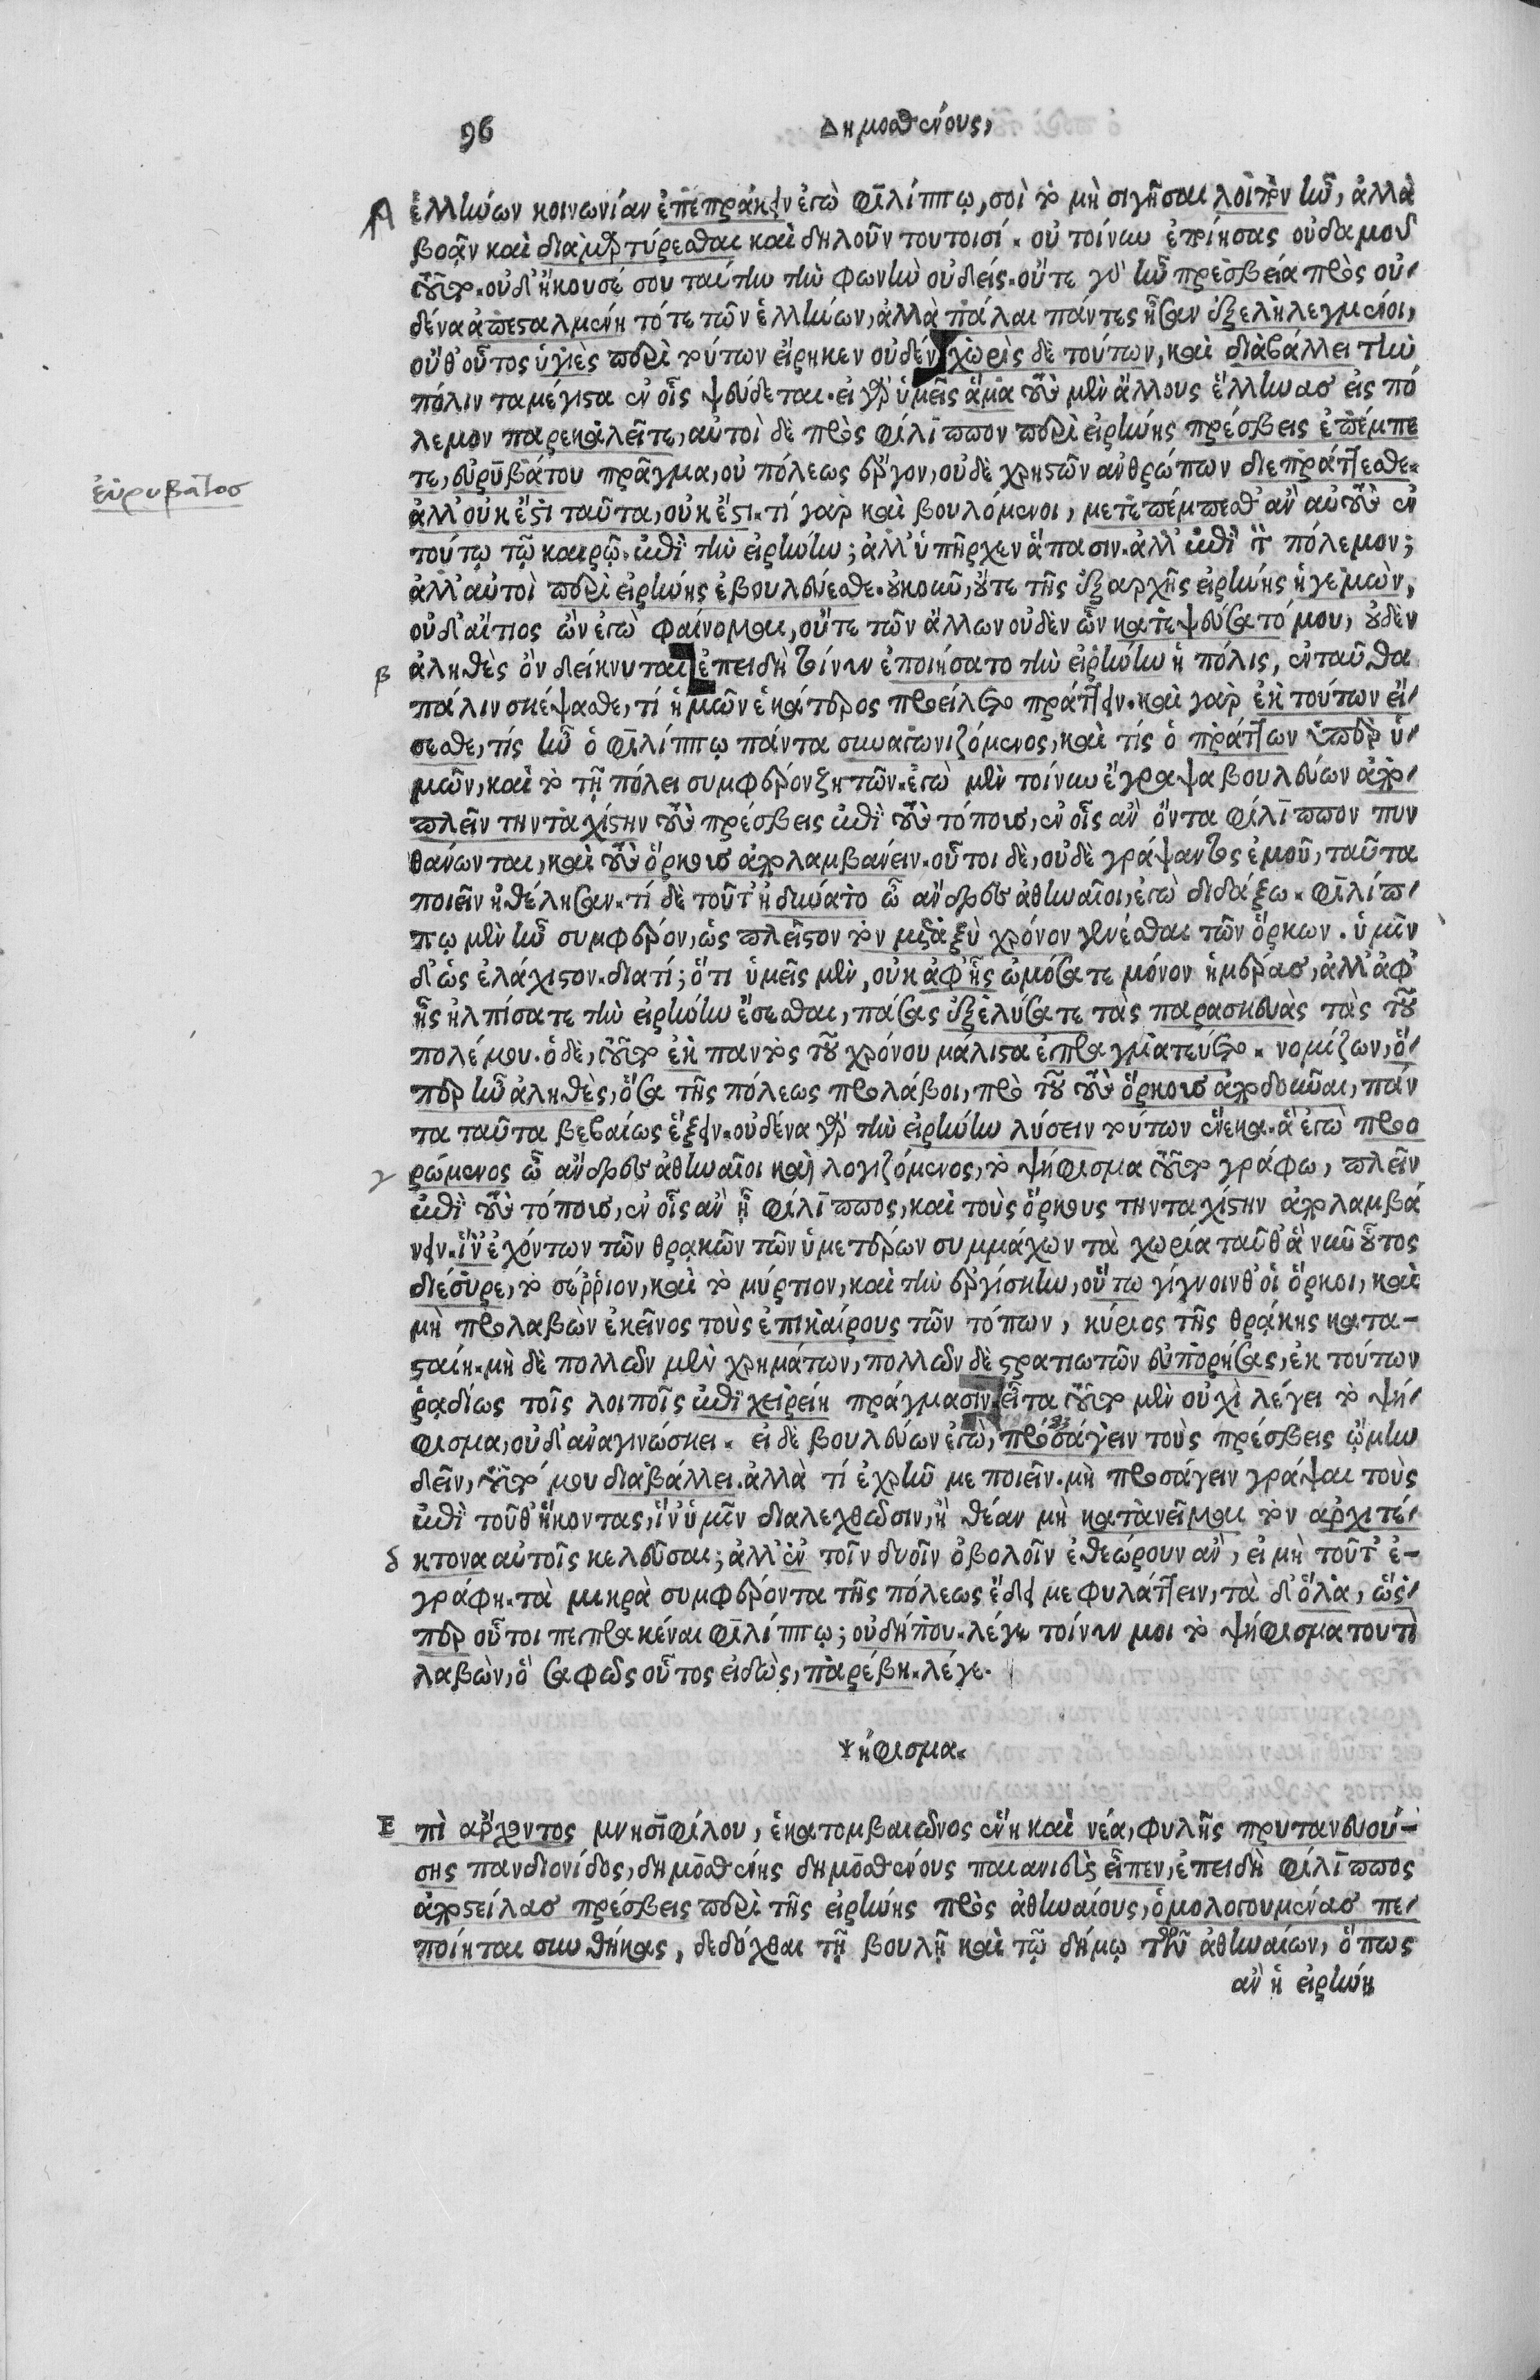 96
Δημοσθένους,
Α
ἑλλήνων κοινωνίαν ἐπεπράκειν ἐγὼ φιλίππῳ, σοὶ τὸ μὴ σιγῆσαι λοιπὸν ἦν, ἀλλὰ
βοᾷν καὶ διαμαρτύρεσθαι καὶ δηλοῦν τουτοισί. οὐ τοίνυν ἐποίησας οὐδαμοῦ
τοῦτο. οὐδ' ἤκουσέ σου ταύτην τὴν φωνὴν οὐδείς. οὔτε γὰρ ἦν πρεσβεία πρὸς οὐ-
δένα ἀπεσταλμένη τότε τῶν ἑλλήνων, ἀλλὰ πάλαι πάντες ἦσαν ἐξεληλεγμένοι,
οὔθ' οὗτος ὑγιὲς περὶ τούτων εἴρηκεν οὐδέν. χωρὶς δὲ τούτων, καὶ διαβάλλει τὴν
πόλιν τὰ μέγιστα ἐν οἷς ψεύδεται. εἰ γὰρ ὑμεῖς ἅμα τοὺς μὲν ἄλλους ἕλληνας εἰς πό
λεμον παρεκαλεῖτε, αὐτοὶ δὲ πρὸς φίλιππον περὶ εἰρήνης πρέσβεις ἐπέμπε
τε, εὐρυβάτου πρᾶγμα, οὐ πόλεως ἔργον, οὐδὲ χρηστῶν ἀνθρώπων διεπράττεσθε.
εὐρυβάτος
ἀλλ' οὐκ ἔστι ταῦτα, οὐκ ἔστι. τί γὰρ καὶ βουλόμενοι, μετεπέμπεσθ' ἂν αὐτοὺς ἐν
τούτῳ τῷ καιρῷ. ἐπὶ τὴν εἰρήνην; ἀλλ' ὑπῆρχεν ἅπασιν. ἀλλ' ἐπὶ τὸν πόλεμον;
ἀλλ' αὐτοὶ περὶ εἰρήνης ἐβουλεύεσθε. οὐκοῦν, οὔτε τῆς ἐξαρχῆς εἰρήνης ἡγεμὼν,
οὐδ' αἴτιος ὢν ἐγὼ φαίνομαι, οὔτε τῶν ἄλλων οὐδὲν ὧν κατεψεύσατό μου, οὐδὲν
β
ἀληθὲς ὂν δείκνυται. ἐπειδὴ τοίνυν ἐποιήσατο τὴν εἰρήνην ἡ πόλις, ἐνταῦθα
πάλιν σκέψασθε, τί ἡμῶν ἑκάτερος προείλετο πράττειν. καὶ γὰρ ἐκ τούτων εἴ-
σεσθε, τίς ἦν ὁ φιλίππῳ πάντα συναγωνιζόμενος, καὶ τίς ὁ πράττων ὑπὲρ ὑ-
μῶν, καὶ τὸ τῇ πόλει συμφέρον ζητῶν. ἐγὼ μὲν τοίνυν ἔγραψα βουλεύων ἀπο-
πλεῖν τὴν ταχίστην τοὺς πρέσβεις ἐπὶ τοὺς τόπους, ἐν οἷς ἂν ὄντα φίλιππον πυν
θάνωνται, καὶ τοὺς ὅρκους ἀπολαμβάνειν. οὗτοι δὲ, οὐδὲ γράψαντος ἐμοῦ, ταῦτα
ποιεῖν ἠθέλησαν. τί δὲ τοῦτ' ἠδύνατο ὦ ἄνδρες ἀθηναῖοι, ἐγὼ διδάξω. φιλίπ-
πῳ μὲν ἦν συμφέρον, ὡς πλεῖστον τὸν μεταξὺ χρόνον γενέσθαι τῶν ὅρκων. ὑμῖν
δ' ὡς ἐλάχιστον. διατί; ὅτι ὑμεῖς μὲν, οὐκ ἀφ' ἧς ὠμόσατε μόνον ἡμέρας, ἀλλ' ἀφ'
ἧς ἠλπίσατε τὴν εἰρήνην ἔσεσθαι, πάσας ἐξελύσατε τὰς παρασκευὰς τὰς τοῦ
πολέμου. ὁ δὲ, τοῦτο ἐκ παντὸς τοῦ χρόνου μάλιστα ἐπραγματεύετο. νομίζων, ὅ-
περ ἦν ἀληθὲς, ὅσα τῆς πόλεως προλάβοι, πρὸ τοῦ τοὺς ὅρκους ἀποδοῦναι, πάν
τα ταῦτα βεβαίως ἕξειν. οὐδένα γὰρ τὴν εἰρήνην λύσειν τούτων ἕνεκα. ἃ ἐγὼ προο
γ
ρώμενος ὦ ἄνδρες ἀθηναῖοι καὶ λογιζόμενος, τὸ ψήφισμα τοῦτο γράφω, πλεῖν
ἐπὶ τοὺς τόπους, ἐν οἷς ἂν ᾖ φίλιππος, καὶ τοὺς ὅρκους τὴν ταχίστην ἀπολαμβά
νειν. ἵν' ἐχόντων τῶν θρᾳκῶν τῶν ὑμετέρων συμμάχων τὰ χωρία ταῦθ' ἃ νῦν οὗτος
διέσυρε, τὸ σέρριον, καὶ τὸ μύρτιον, καὶ τὴν ἐργίσκην, οὕτω γίγνοινθ' οἱ ὅρκοι, καὶ
μὴ προλαβὼν ἐκεῖνος τοὺς ἐπικαίρους τῶν τόπων, κύριος τῆς θρᾴκης κατα-
σταίη. μὴ δὲ πολλῶν μὲν χρημάτων, πολλῶν δὲ στρατιωτῶν εὐπορήσας, ἐκ τούτων
ῥᾳδίως τοῖς λοιποῖς ἐπιχειρείη πράγμασιν. εἶτα τοῦτο μὲν οὐχὶ λέγει τὸ ψή-
φισμα, οὐδ' ἀναγινώσκει. εἰ δὲ βουλεύων ἐγὼ, προσάγειν τοὺς πρέσβεις ᾤμην
δεῖν, τοῦτό μου διαβάλλει. ἀλλὰ τί ἐχρῆν με ποιεῖν. μὴ προσάγειν γράψαι τοὺς
ἐπὶ τοῦθ' ἥκοντας, ἵν' ὑμῖν διαλεχθῶσιν, ἢ θέαν μὴ κατανεῖμαι τὸν ἀρχιτέ-
δ
κτονα αὐτοῖς κελεῦσαι; ἀλλ' ἐν τοῖν δυοῖν ὀβολοῖν ἐθεώρουν ἂν, εἰ μὴ τοῦτ' ἐ-
γράφη. τὰ μικρὰ συμφέροντα τῆς πόλεως ἔδει με φυλάττειν, τὰ δ' ὅλα, ὥς-
περ οὗτοι πεπρακέναι φιλίππῳ; οὐδήπου. λέγε τοίνυν μοι τὸ ψήφισμα τουτὶ
λαβὼν, ὃ σαφῶς οὗτος εἰδὼς, παρέβη. λέγε.
Ψήφισμα.
Ε πὶ ἄρχοντος μνησιφίλου, ἑκατομβαιῶνος ἕνη καὶ νέα, φυλῆς πρυτανευού-
σης πανδιονίδος, δημοσθένης δημοσθένους παιανιεὺς εἶπεν, ἐπειδὴ φίλιππος
ἀποστείλας πρέσβεις περὶ τῆς εἰρήνης πρὸς ἀθηναίους, ὁμολογουμένας πε-
ποίηται συνθήκας, δεδόχθαι τῇ βουλῇ καὶ τῷ δήμῳ τῶν ἀθηναίων, ὅπως
ἂν ἡ εἰρήνη